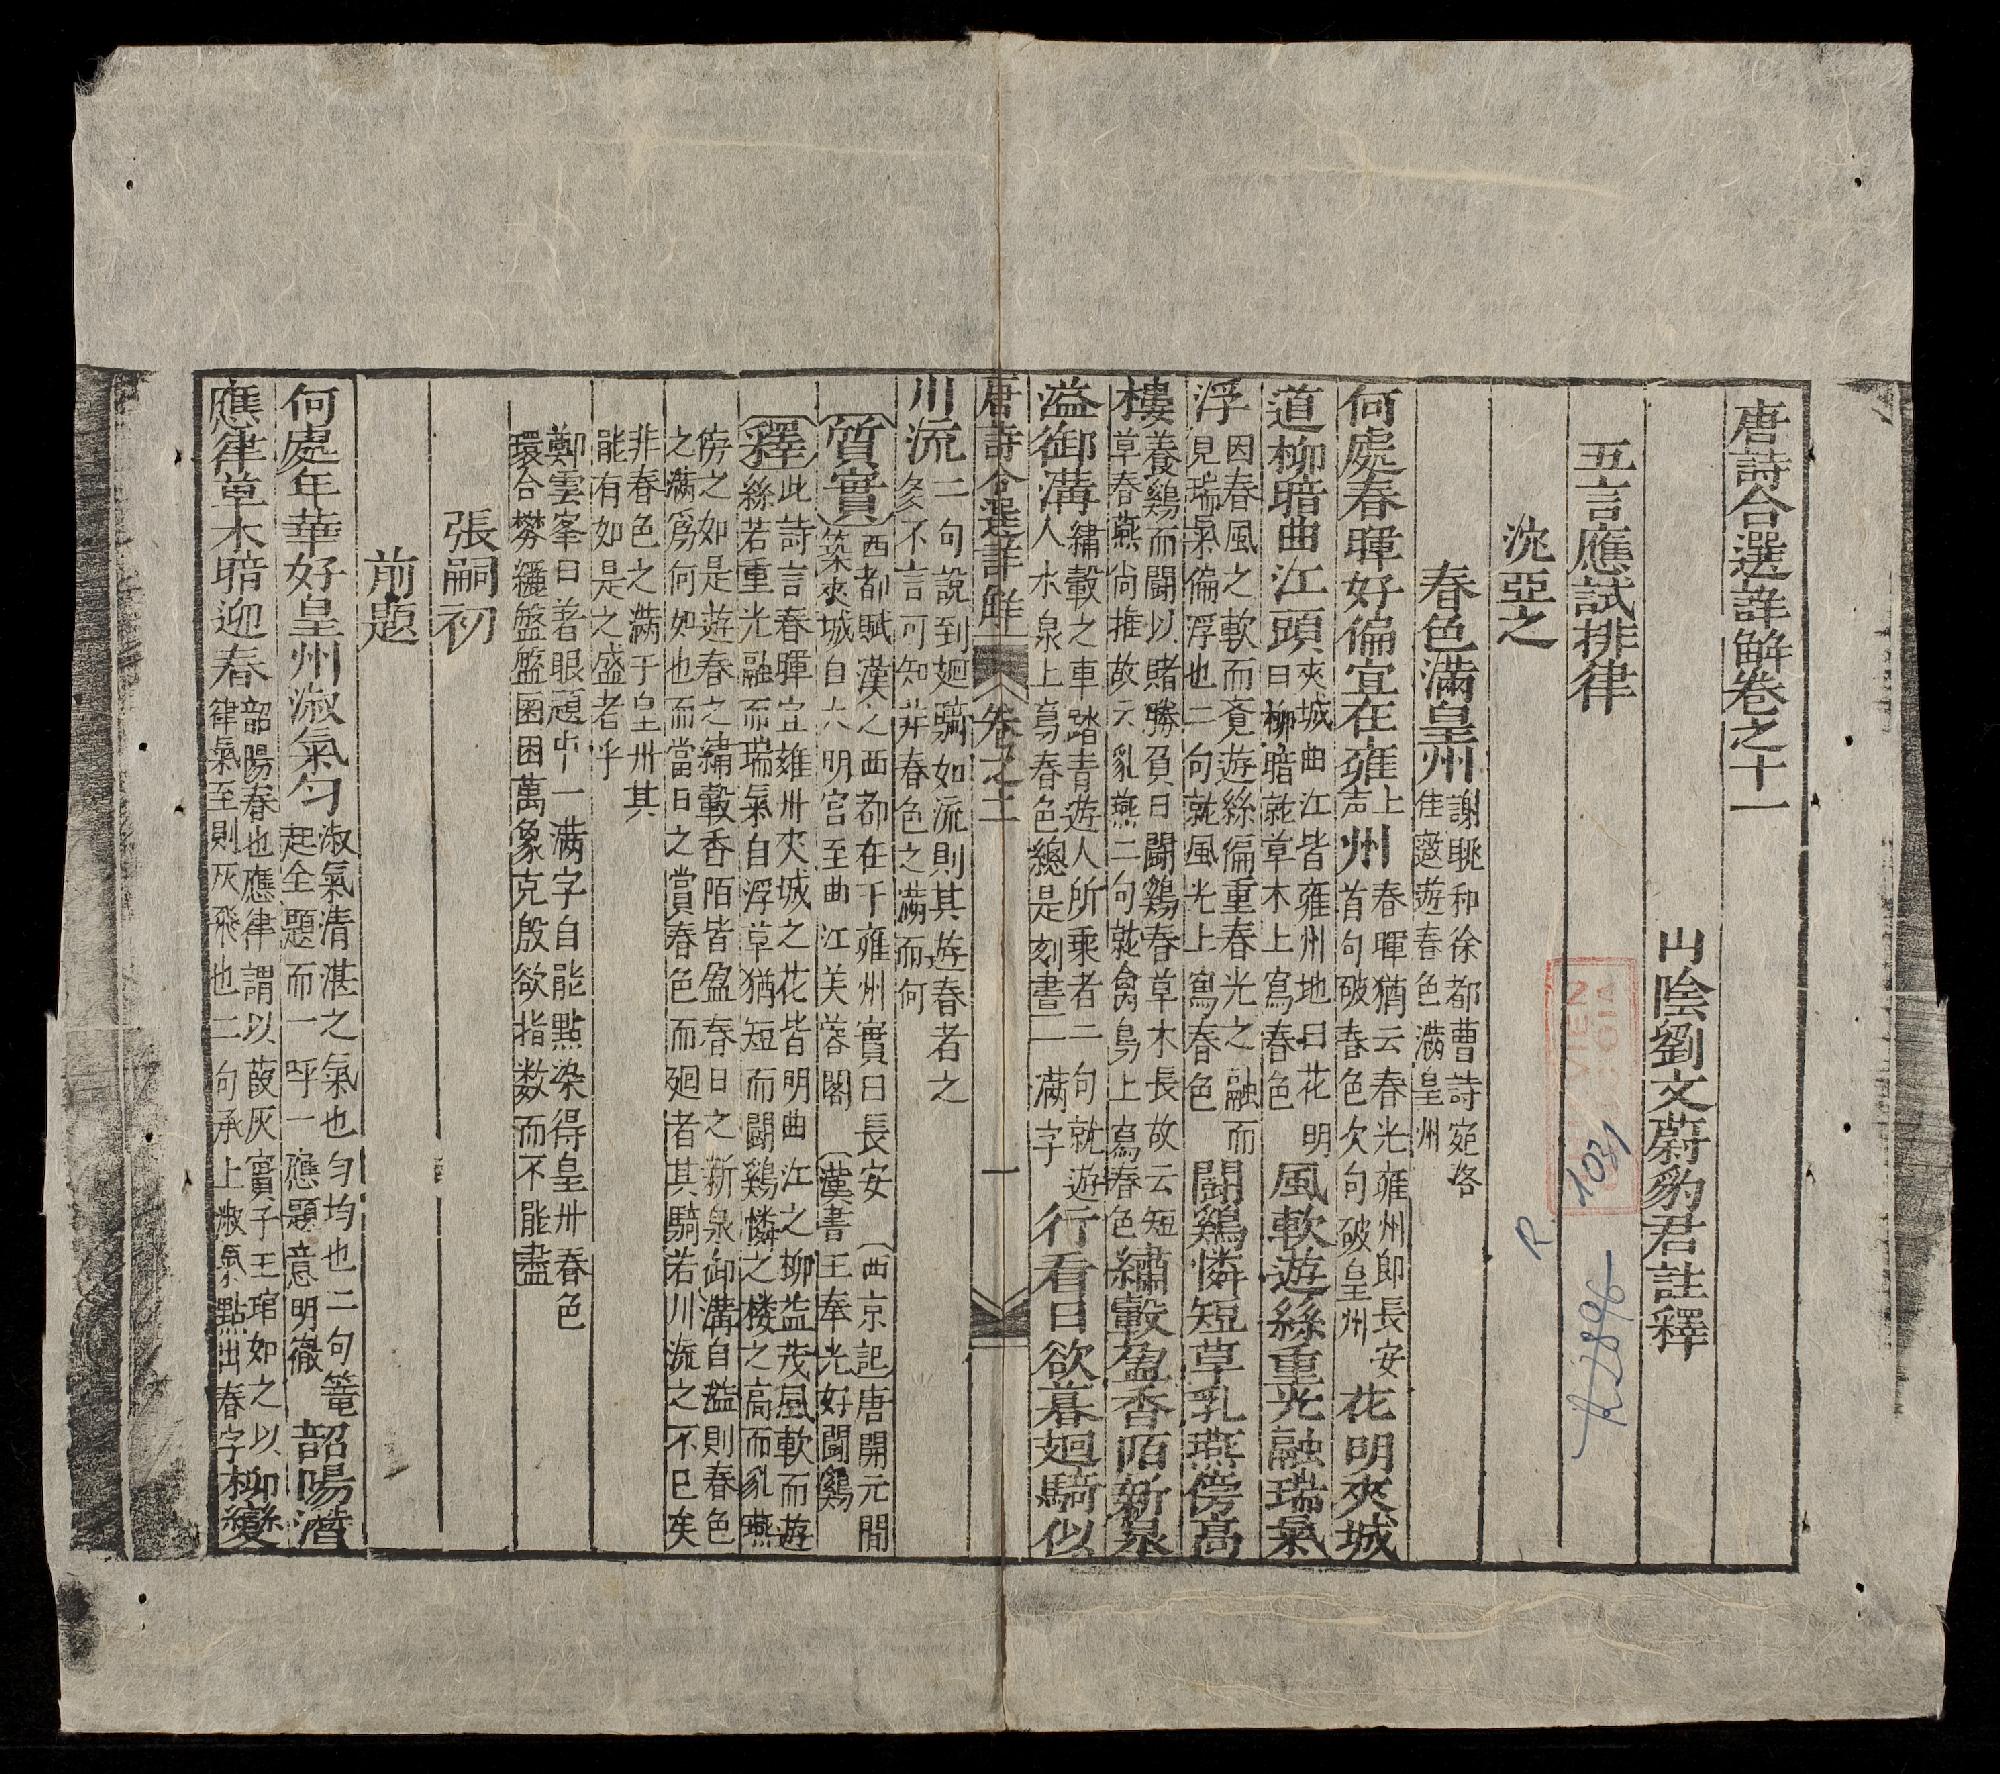 唐詩合選詳解卷之十一
山陰劉文蔚豹君註釋
五言應試排律
沈亞之
春色滿皇州 謝眺和徐都曹詩宛洛佳遨遊春色滿皇州
何處春暉好偏宜在雍上声州 春暉猶云春光雍州即長安首句破春色次句破皇州 花明夾城
道柳暗曲江頭 夾城曲江皆雍州地曰花明曰柳暗就草木上寫春色 風軟遊絲重光融瑞氣
浮 因春風之軟而覔遊絲偏重春光之融而見瑞氣偏浮也二句就風光上寫春色 鬪鷄憐短草乳燕傍高
樓 養鷄而闘以賭勝負曰闘鷄春草木長故云短草春燕尙推故云乳燕二句就禽鳥上寫春色 繡轂盈香陌新泉
溢御溝 繡轂之車踏青遊人所乘者二句就遊人水泉上寫春色總是刻畫一滿字 行看日欲暮廻騎似
唐詩合選詳解 卷之二 一
川流 二句說到廻騎如流則其遊春者之多不言可知并春色之滿而何
質實 西都賦漢之西都在于雍州實曰長安 西京記唐開元間築夾城自大明宫至曲江芙蓉閣 漢書王奉光好闘鷄
釋 此詩言春暉宜雍州夾城之花皆明曲江之柳益茂風軟而遊絲若重光融而瑞氣自浮草猶短而闘鷄憐之楼之高而乳燕
傍之如是遊春之繡轂香陌皆盈春日之新泉御溝自溢則春色之滿爲何如也而當日之賞春色而廻者其騎若川流之不已矣
非春色之滿于皇州其能有如是之盛者乎
鄭雲峯曰著眼題中一滿字自能點染得皇州春色環合勞纒盤盤囷囷萬象克殷欲指数而不能盡
張嗣初
前題
何處年華好皇州淑氣匀 淑氣清湛之氣也匀均也二句籠起全題而一呼一應題意明徹 韶陽潛
應律草木暗迎春 韶陽春也應律謂以葭灰實子玉琯如之以律氣至則灰飛也二句承上淑氣點出春字 柳變
R. 1031
R 2896